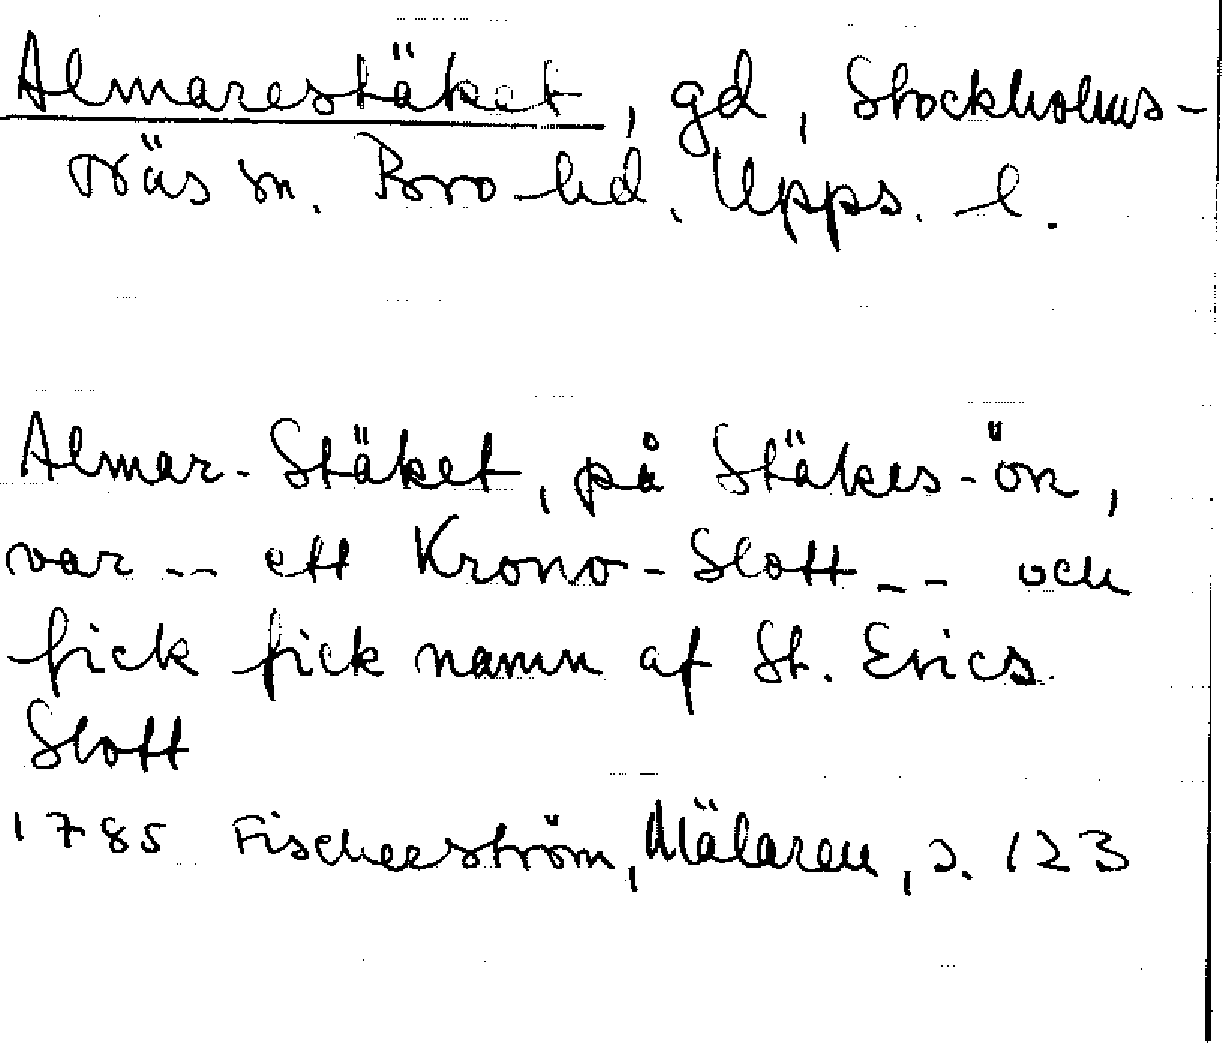 Almarestäket, gd, Stockholms-
näs sn. Bro hd. Upps. l.
Almar-Stäket, på Stäkes-ön,
var -- ett Krono-Slott -- och
fick fick namn af St. Erics
Slott
1785 Fischerström, Mälaren, s. 123